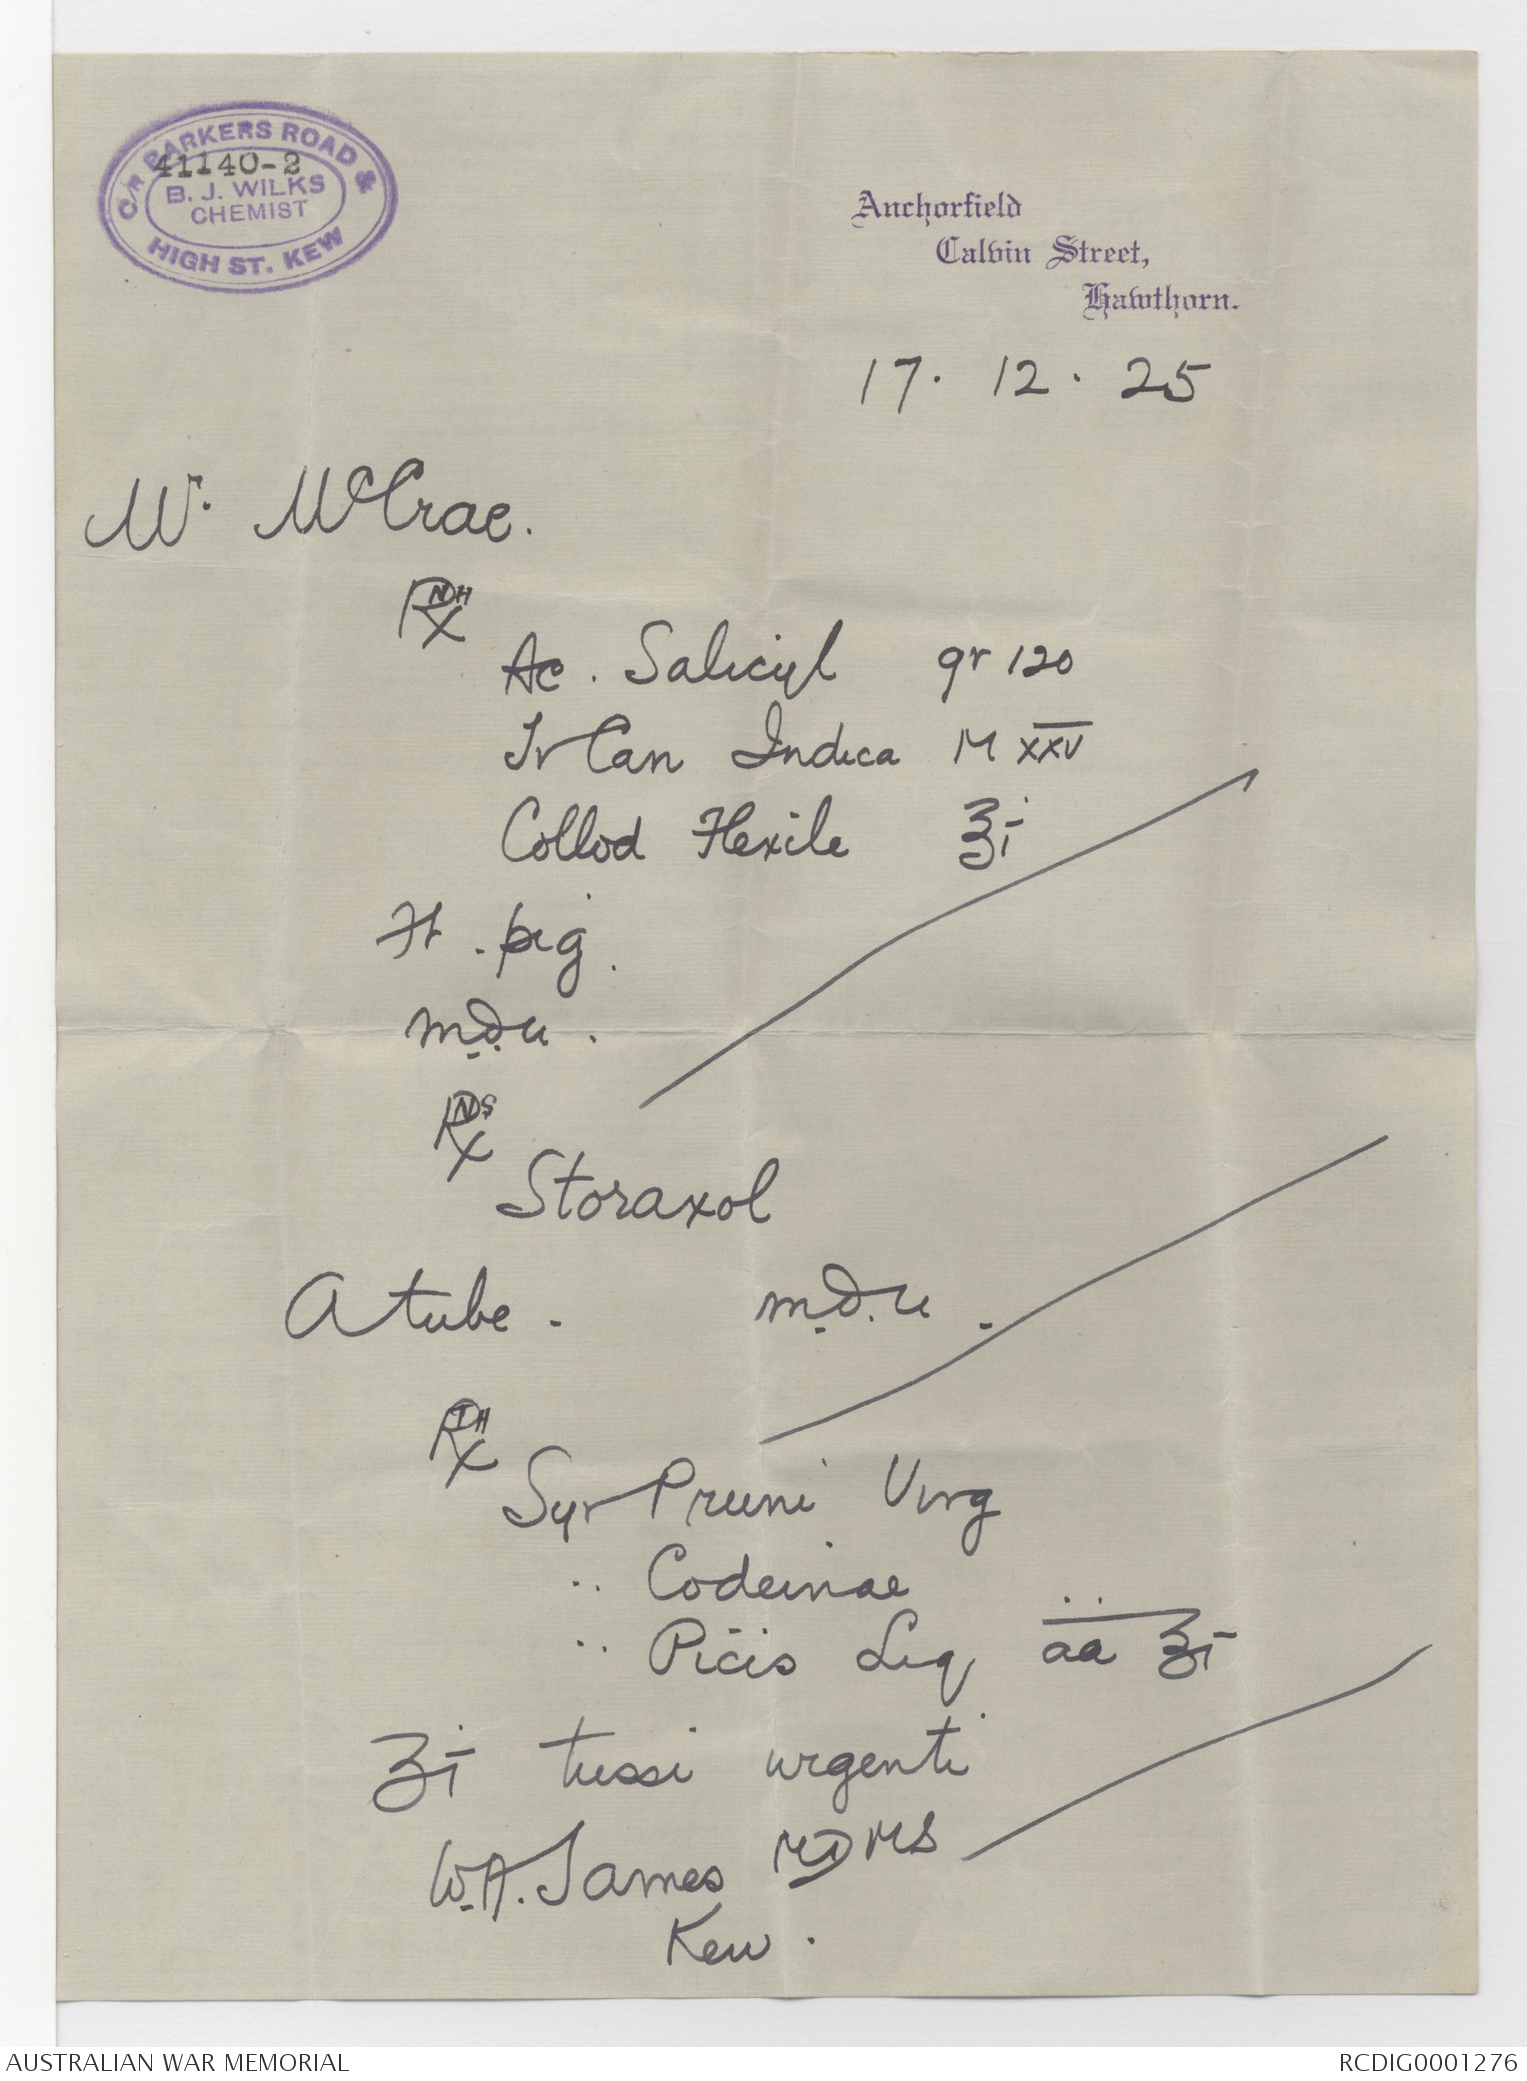 C/R PARKERS ROAD &
41140-2
B. J. WILKS
CHEMIST
HIGH ST. KEW
Anchorfield
Calvin Street,
Hawthorn.
17. 12. 25
Mr. McCrae.
Rx NH
Ac. Salicyl gr 120
Tr Can Indica M xxv
Collod Flexile ℥i
Ft. pig.
m.d.u.
Rx NS
Storaxol
A tube. m.d.u.
Rx IH
Syr Pruni Virg
.. Codeinae
.. Picis Liq āā ℥i
ʒi tussi urgenti
W.A. James MD MS
Kew.
AUSTRALIAN WAR MEMORIAL
RCDIG0001276